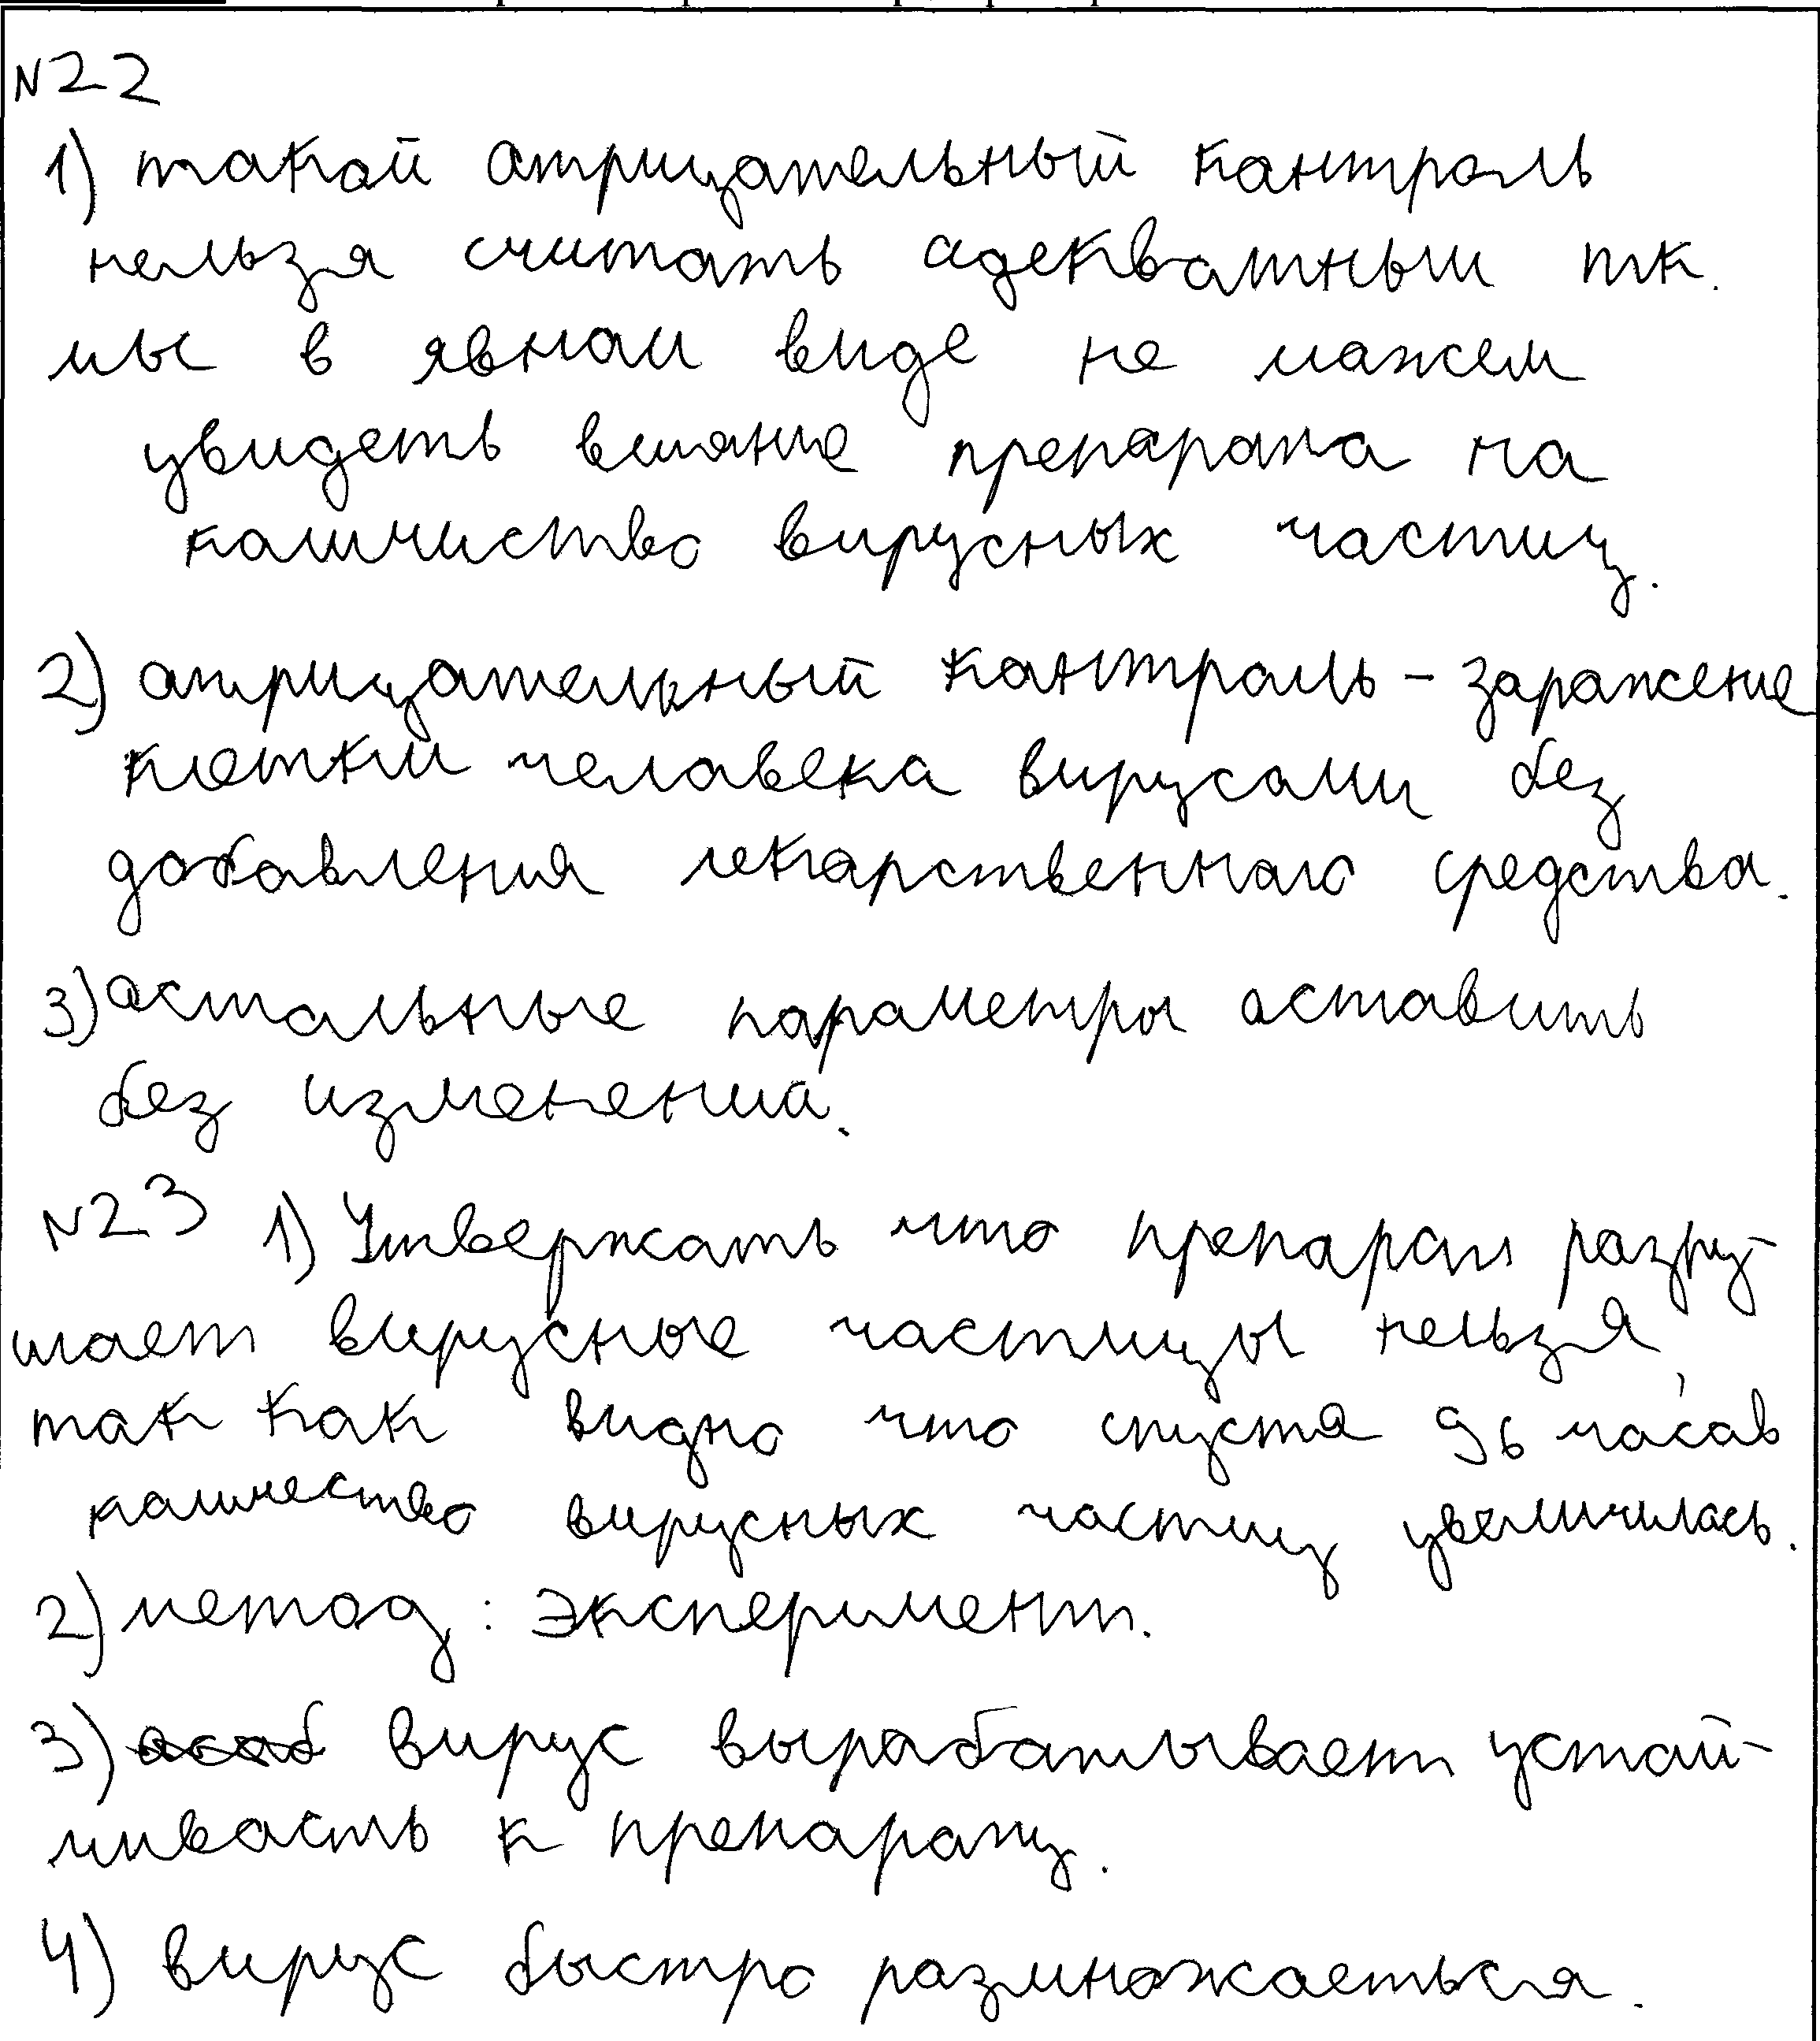 №22
1) такой отрицательный контроль
нельзя считать адекватным тк.
мы в явном виде не можем
увидеть влияние препарата на
количиство вирусных частиц.
2) отрицательный контроль - заражение
клетки человека вирусами без
добавления лекарственного средства.
3) остальные параметры оставить
без изменения.
№23 1) Утвержать что препарат разру-
шает вирусные частицы нельзя,
так как видно что спустя 96 часов
количество вирусных частиц увеличилось.
2) метод: эксперимент.
3) вирус вырабатывает устой-
чивость к препарату.
4) вирус быстро размножаеться.